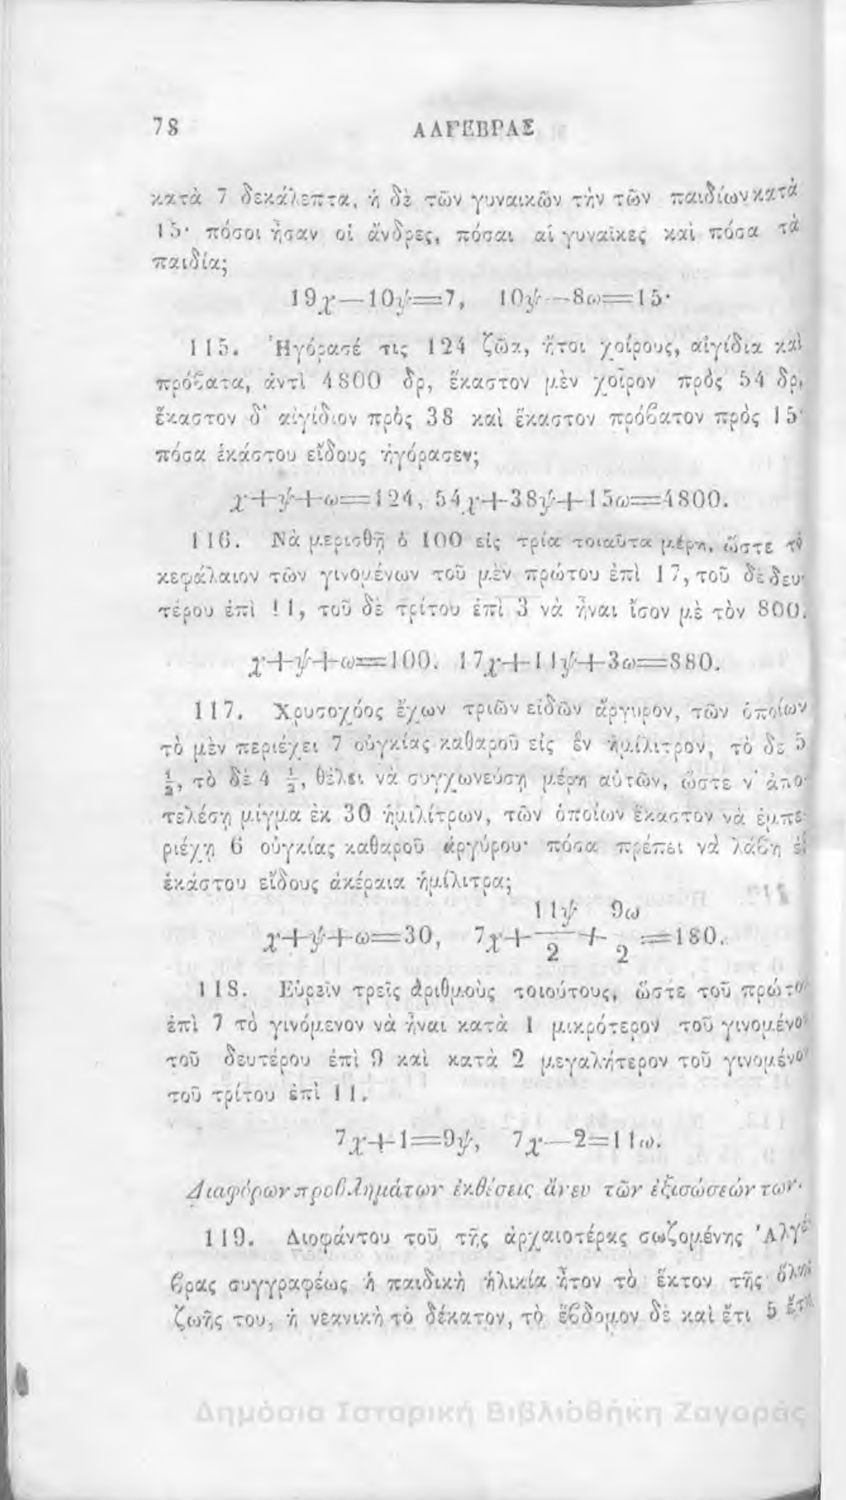 78 ΑΛΓΕΒΡΑΣ
κατὰ 7 δεκάλεπτα, ἡ δὲ τῶν γυναικῶν τὴν τῶν παιδίων κατὰ
15· πόσοι ἦσαν οἱ ἄνδρες, πόσαι αἱ γυναῖκες καὶ πόσα τὰ
παιδία;
19χ—10ψ=7, 10ψ—8ω=15·
115. Ἠγόρασέ τις 124 ζῶα, ἤτοι χοίρους, αἰγίδια καὶ
πρόβατα, ἀντὶ 4800 δρ, ἕκαστον μὲν χοῖρον πρὸς 54 δρ,
ἕκαστον δ' αἰγίδιον πρὸς 38 καὶ ἕκαστον πρόβατον πρὸς 15·
πόσα ἑκάστου εἴδους ἠγόρασεν;
χ+ψ+ω=124, 54χ+38ψ+15ω=4800.
116. Νὰ μερισθῇ ὁ 100 εἰς τρία τοιαῦτα μέρη, ὥστε τὸ
κεφάλαιον τῶν γινομένων τοῦ μὲν πρώτου ἐπὶ 17, τοῦ δὲ δευ-
τέρου ἐπὶ 11, τοῦ δὲ τρίτου ἐπὶ 3 νὰ ἦναι ἴσον μὲ τὸν 800.
χ+ψ+ω=100. 17χ+11ψ+3ω=880.
117. Χρυσοχόος ἔχων τριῶν εἰδῶν ἄργυρον, τῶν ὁποίων
τὸ μὲν περιέχει 7 οὐγκίας καθαροῦ εἰς ἓν ἡμίλιτρον, τὸ δὲ 5
½, τὸ δὲ 4 ½, θέλει νὰ συγχωνεύσῃ μέρη αὐτῶν, ὥστε ν' ἀπο-
τελέσῃ μίγμα ἐκ 30 ἡμιλίτρων, τῶν ὁποίων ἕκαστον νὰ ἐμπε-
ριέχῃ 6 οὐγκίας καθαροῦ ἀργύρου· πόσα πρέπει νὰ λάβῃ ἐξ
ἑκάστου εἴδους ἀκέραια ἡμίλιτρα;
χ+ψ+ω=30, 7χ+11ψ/2+9ω/2=180.
118. Εὑρεῖν τρεῖς ἀριθμοὺς τοιούτους, ὥστε τοῦ πρώτου
ἐπὶ 7 τὸ γινόμενον νὰ ἦναι κατὰ 1 μικρότερον τοῦ γινομένου
τοῦ δευτέρου ἐπὶ 9 καὶ κατὰ 2 μεγαλήτερον τοῦ γινομένου
τοῦ τρίτου ἐπὶ 11.
7χ+1=9ψ, 7χ—2=11ω.
Διαφόρων προβλημάτων ἐκθέσεις ἄνευ τῶν ἐξισώσεών των.
119. Διοφάντου τοῦ τῆς ἀρχαιοτέρας σωζομένης Ἀλγέ-
βρας συγγραφέως ἡ παιδικὴ ἡλικία ἦτον τὸ ἕκτον τῆς ὅλης
ζωῆς του, ἡ νεανικὴ τὸ δέκατον, τὸ ἕβδομον δὲ καὶ ἔτι 5 ἔτη
Δημόσια Ιστορική Βιβλιοθήκη Ζαγοράς